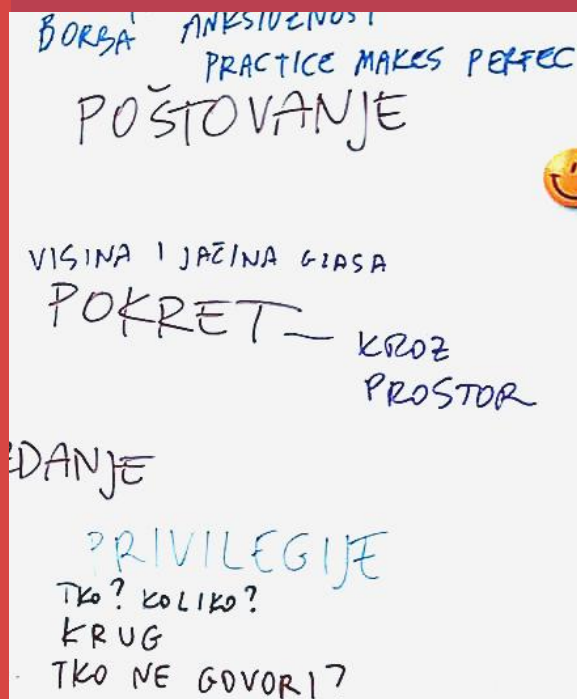 BORBA ANKSIOZNOST
PRACTICE MAKES PERFEC
POŠTOVANJE
VISINA I JAČINA GLASA
POKRET – KROZ
PROSTOR
EDANJE
PRIVILEGIJE
TKO? KOLIKO?
KRUG
TKO NE GOVORI?